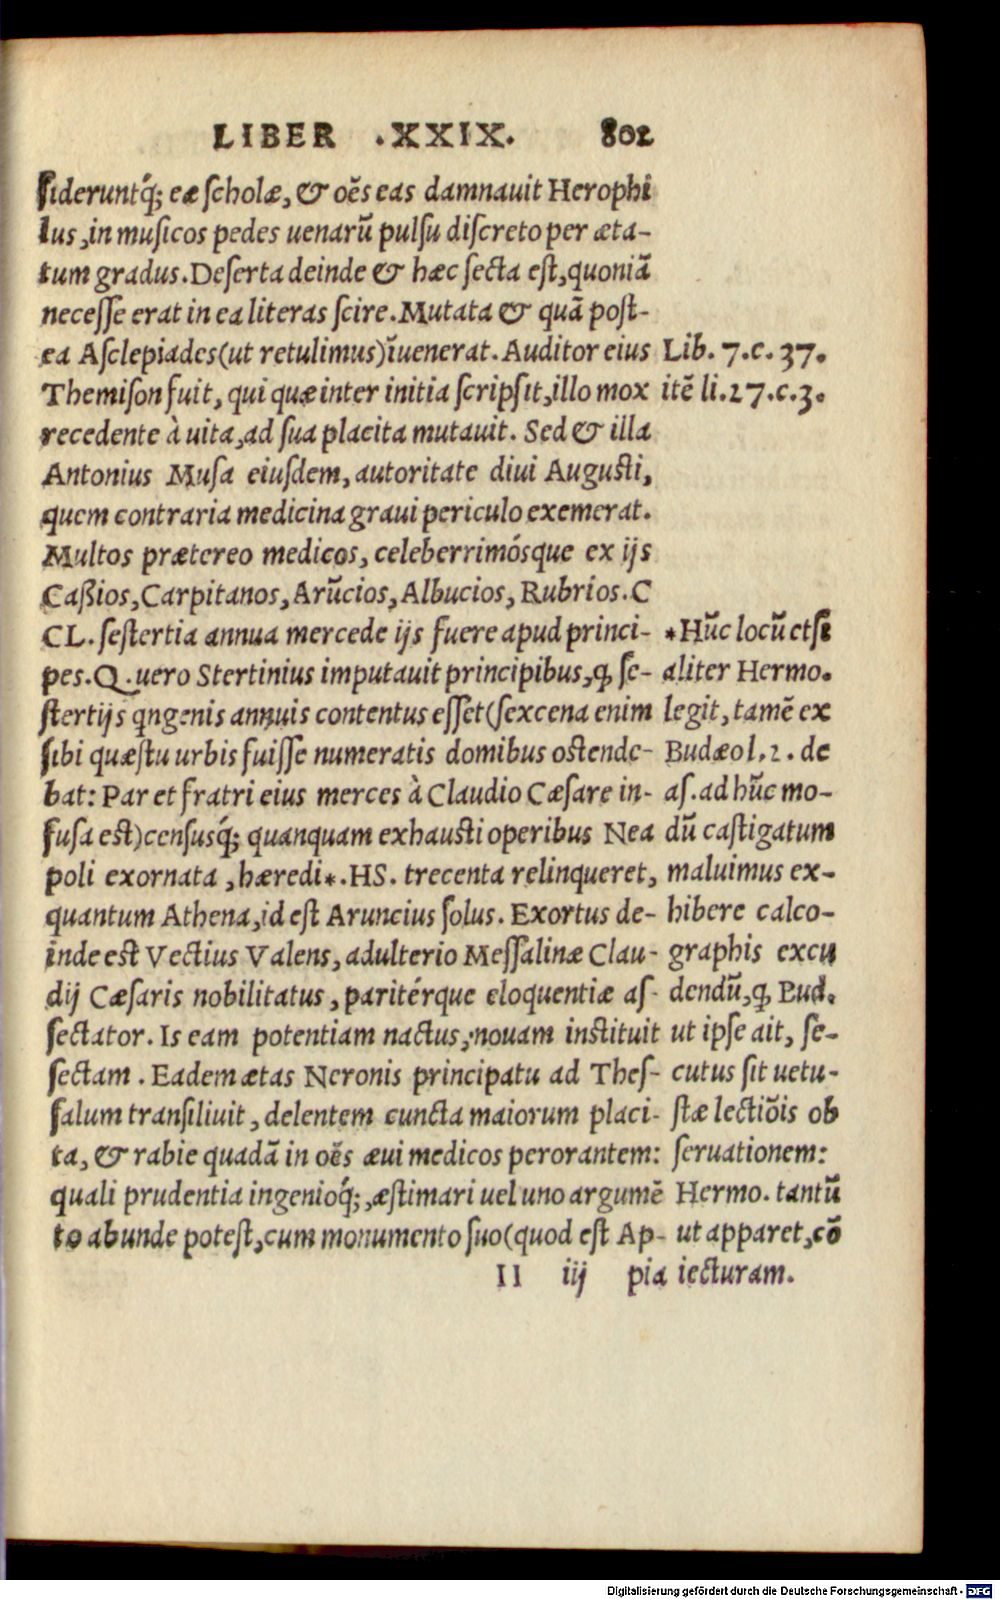 LIBER .XXIX. 801
ſideruntq́; eæ ſcholæ, & oẽs eas damnauit Herophi
lus, in muſicos pedes uenarũ pulſu diſcreto per æta-
tum gradus. Deſerta deinde & hæc ſecta eſt, quoniã
neceſſe erat in ea literas ſcire. Mutata & quã poſt-
ea Aſclepiades (ut retulimus) ĩuenerat. Auditor eius
Themiſon fuit, qui quæ inter initia ſcripſit, illo mox
recedente à uita, ad ſua placita mutauit. Sed & illa
Antonius Muſa eiuſdem, autoritate diui Auguſti,
quem contraria medicina graui periculo exemerat.
Multos prætereo medicos, celeberrimósque ex ijs
Caßios, Carpitanos, Arũcios, Albucios, Rubrios. C
CL. ſeſtertia annua mercede ijs fuere apud princi-
pes. Q. uero Stertinius imputauit principibus, q̨ ſe-
ſtertijs qngenis annuis contentus eſſet (ſexcena enim
ſibi quæſtu urbis fuiſſe numeratis domibus oſtende-
bat: Par et fratri eius merces à Claudio Cæſare in-
fuſa eſt) cenſusq́; quanquam exhauſti operibus Nea
poli exornata, hæredi*. HS. trecenta relinqueret,
quantum Athena, id eſt Aruncius ſolus. Exortus de-
inde eſt Vectius Valens, adulterio Meſſalinæ Clau-
dij Cæſaris nobilitatus, paritérque eloquentiæ aſ-
ſectator. Is eam potentiam nactus, nouam inſtituit
ſectam. Eadem ætas Neronis principatu ad Theſ-
ſalum tranſiliuit, delentem cuncta maiorum placi-
ta, & rabie quadã in oẽs æui medicos perorantem:
quali prudentia ingenioq́;, æſtimari uel uno argumẽ
to abunde poteſt, cum monumento ſuo (quod eſt Ap-
II iij pia
Lib. 7. c. 37.
itẽ li. 27. c. 3.
*Hũc locũ etſi
aliter Hermo.
legit, tamẽ ex
Budæo l. 2. de
aſ. ad hũc mo-
dũ caſtigatum
maluimus ex-
hibere calco-
graphis excu
dendũ, q̨ Bud.
ut ipſe ait, ſe-
cutus ſit uetu-
ſtæ lectiõis ob
ſeruationem:
Hermo. tantũ
ut apparet, cõ
iecturam.
Digitalisierung gefördert durch die Deutsche Forschungsgemeinschaft - DFG